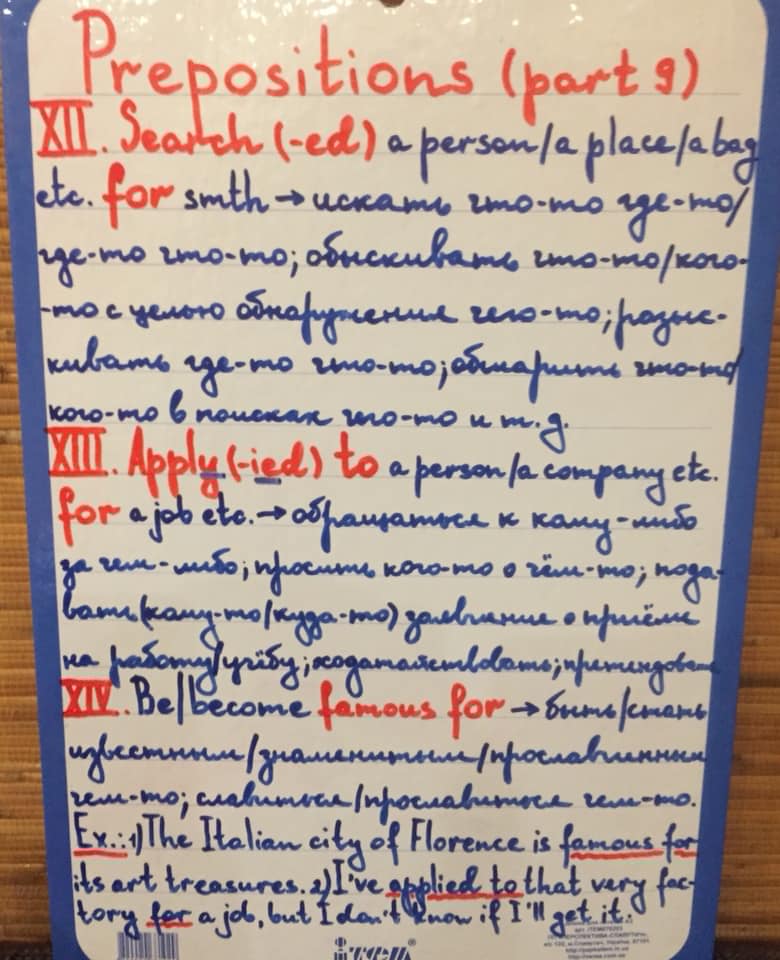 Prepositions (part 9)
XII. Search (-ed) a person/a place/a bag
etc. for smth → искать что-то где-то/
где-то что-то; обыскивать что-то/кого-
-то с целью обнаружения чего-то; разыс-
кивать где-то что-то; обшарить что-то/
кого-то в поисках чего-то и т. д.
XIII. Apply (-ied) to a person/a company etc.
for a job etc. → обращаться к кому-либо
за чем-либо; просить кого-то о чём-то; пода-
вать (кому-то/куда-то) заявление о приёме
на работу/учёбу; ходатайствовать; претендовать
XIV. Be/become famous for → быть/стать
известным/знаменитым/прославленным
чем-то; славиться/прославиться чем-то.
Ex.: 1) The Italian city of Florence is famous for
its art treasures. 2) I've applied to that very fac-
tory for a job, but I don't know if I'll get it.
ITEM